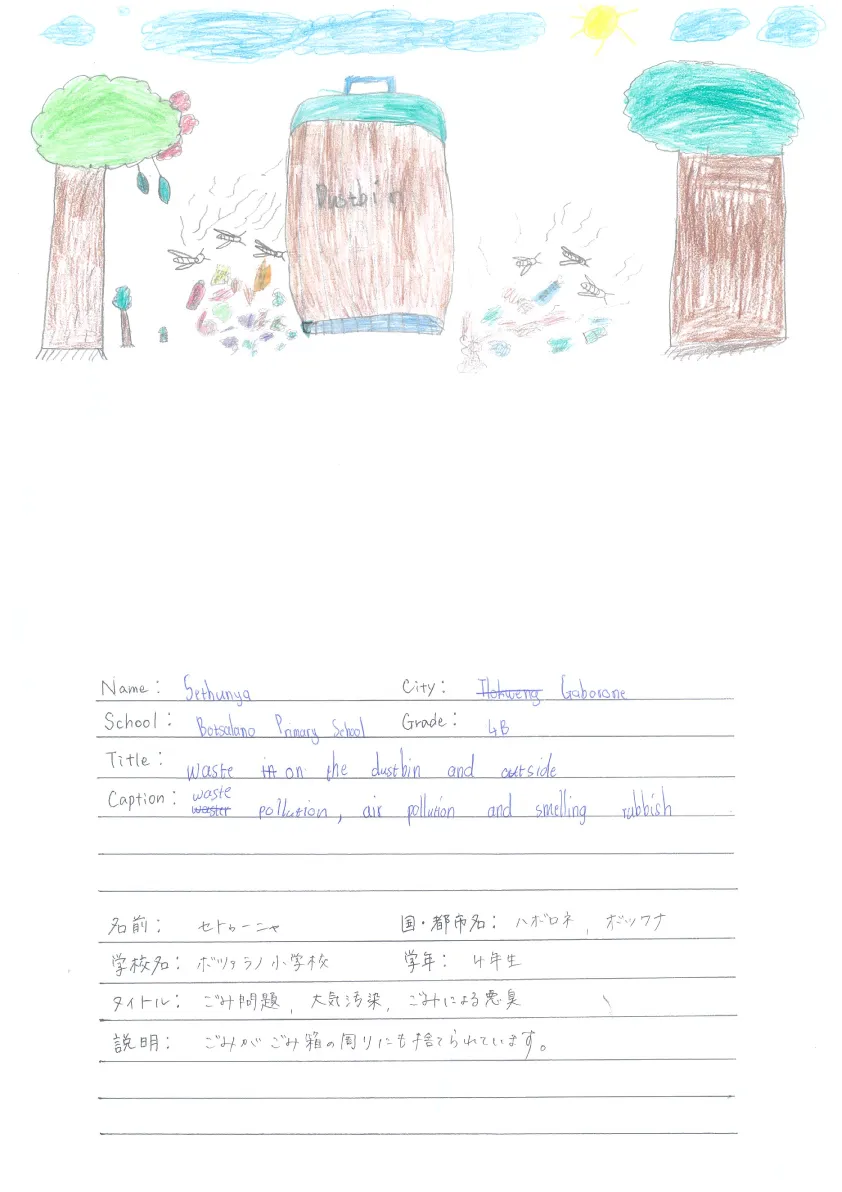 Dustbin
Name: Sethunya City: Gaborone
School: Botsalano Primary School Grade: 4B
Title: waste on the dustbin and outside
Caption: waste pollution, air pollution and smelling rubbish
名前: セトゥーニャ 国・都市名: ハボロネ, ボツワナ
学校名: ボツァラノ小学校 学年: 4年生
タイトル: ごみ問題, 大気汚染, ごみによる悪臭
説明: ごみがごみ箱の周りにも捨てられています。